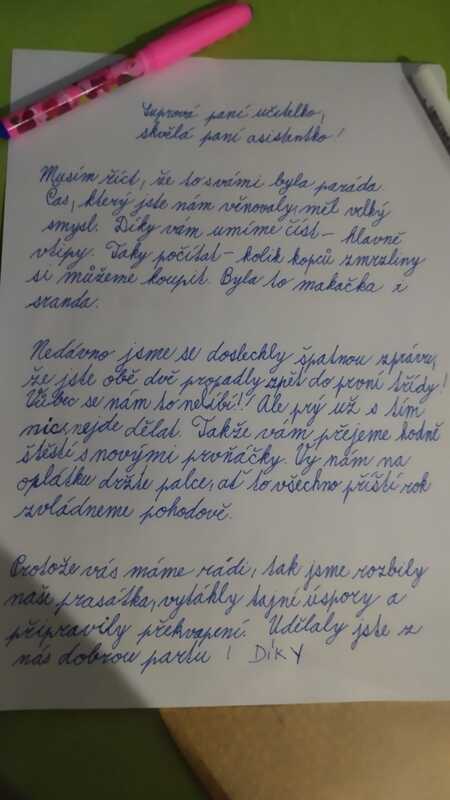 Suprová paní učitelko,
skvělá paní asistentko!
Musím říct, že to s vámi byla paráda.
Čas, který jste nám věnovaly, měl velký
smysl. Díky vám umíme číst – hlavně
vtipy. Taky počítat – kolik kopců zmrzliny
si můžeme koupit. Byla to makačka i
sranda.
Nedávno jsme se doslechly špatnou zprávu,
že jste obě dvě propadly zpět do první třídy!
Vůbec se nám to nelíbí!! Ale prý už s tím
nic nejde dělat. Takže vám přejeme hodně
štěstí s novými prvňáčky. Vy nám na
oplátku držte palce, ať to všechno příští rok
zvládneme pohodově.
Protože vás máme rádi, tak jsme rozbily
naše prasátka, vytáhly tajné úspory a
připravily překvapení. Udělaly jste z
nás dobrou partu! DÍKY